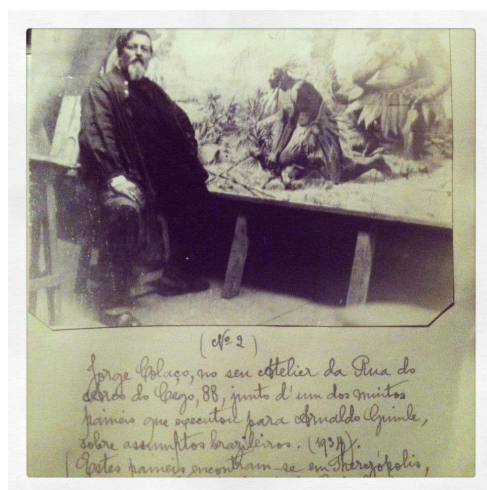 (Nº 2)
Jorge Colaço, no seu Atelier da Rua do
Arco do Cego, 88, junto d'um dos muitos
paineis que executou para Arnaldo Guinle,
sobre assumptos brazileiros. (1939).
(Estes paineis encontram-se em Therezópolis,